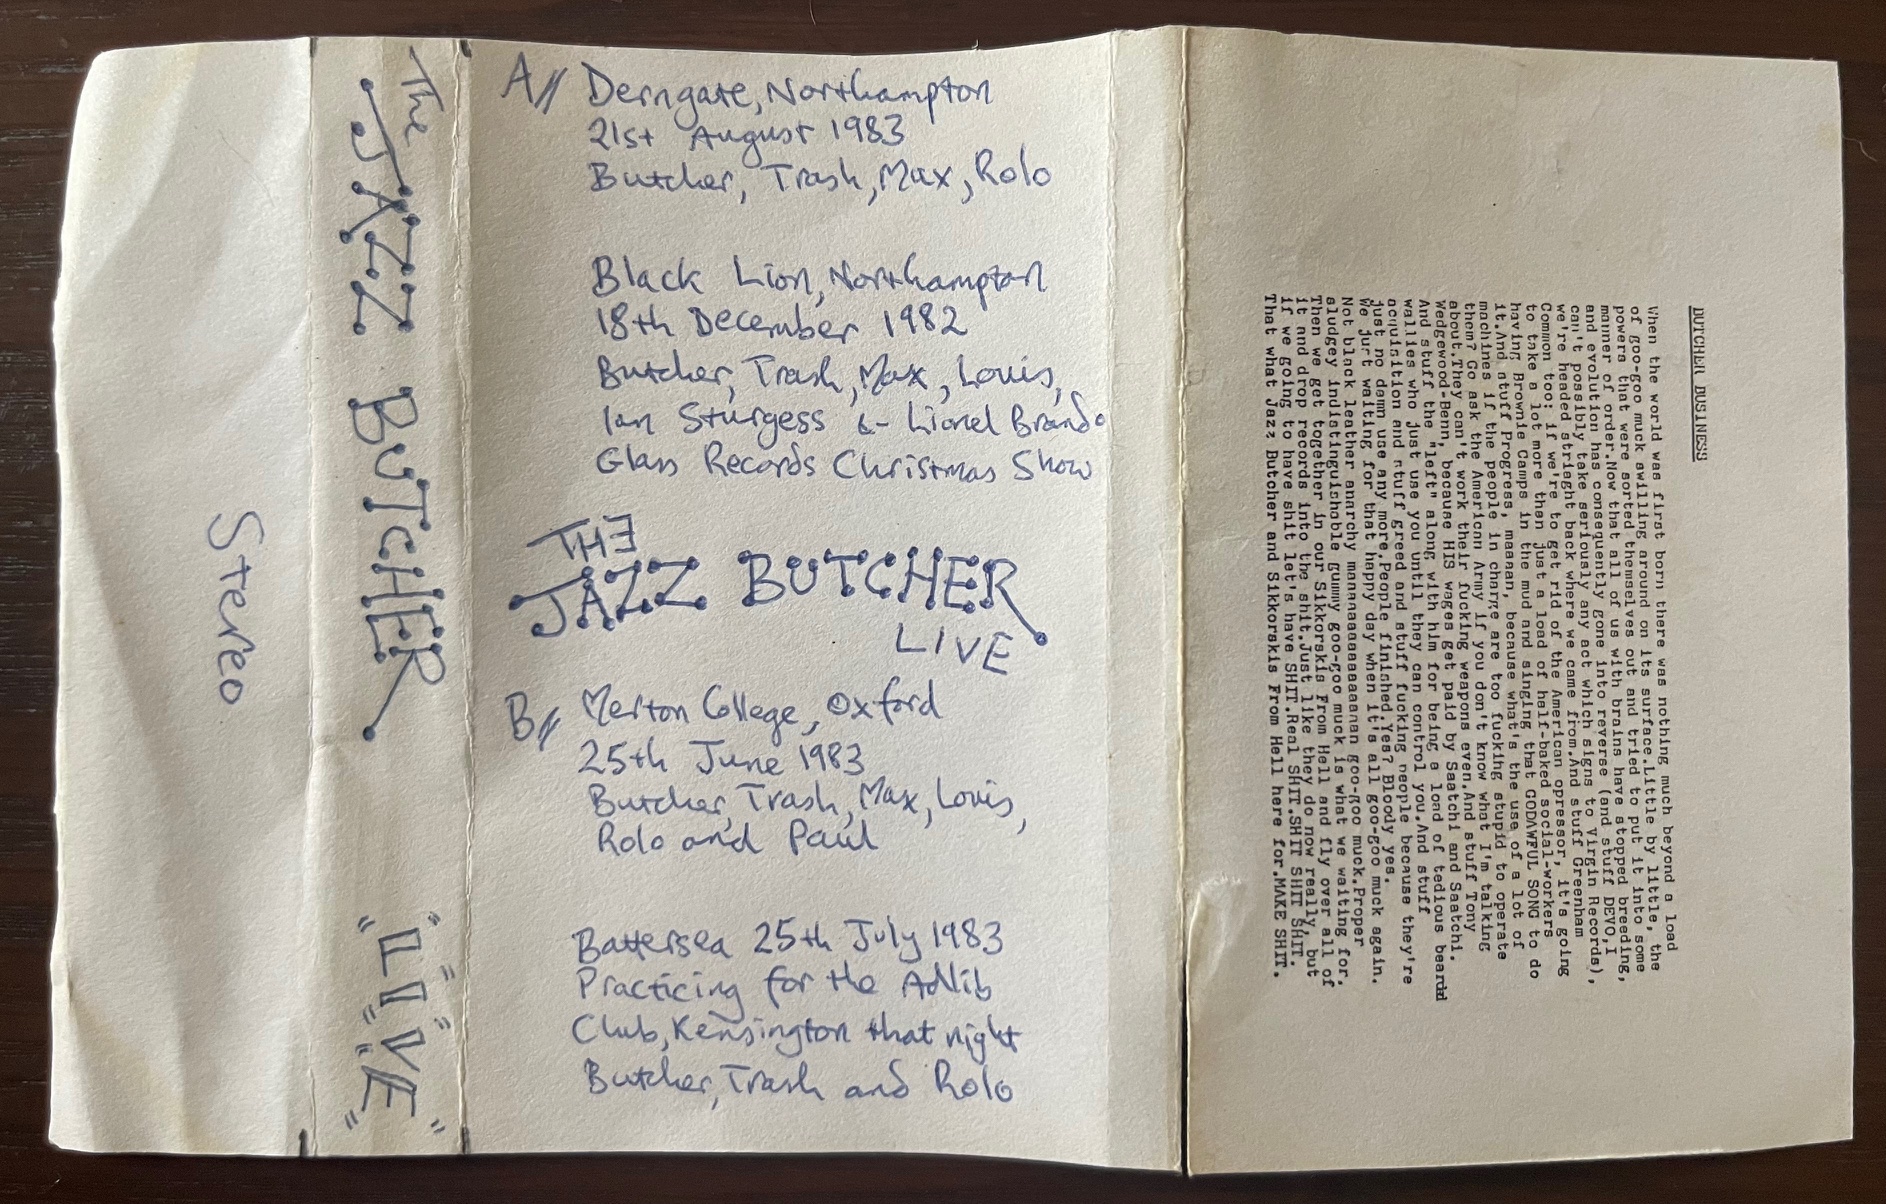 Stereo
The
JAZZ BUTCHER
"LIVE"
A// Derngate, Northampton
21st August 1983
Butcher, Trash, Max, Rolo
Black Lion, Northampton
18th December 1982
Butcher, Trash, Max, Louis,
Ian Sturgess & Lionel Brando
Glass Records Christmas Show
THE
JAZZ BUTCHER
LIVE
B// Merton College, Oxford
25th June 1983
Butcher, Trash, Max, Louis,
Rolo and Paul
Battersea 25th July 1983
Practicing for the AdLib
Club, Kensington that night
Butcher, Trash and Rolo
BUTCHER BUSINESS
When the world was first born there was nothing much beyond a load
of goo-goo muck swilling around on its surface.Little by little, the
powers that were sorted themselves out and tried to put it into some
manner of order.Now that all of us with brains have stopped breeding,
and evolution has consequently gone into reverse (and stuff DEVO,I
can't possibly take seriously any act which signs to Virgin Records),
we're headed stright back where we came from.And stuff Greenham
Common too: if we're to get rid of the American opressor, it's going
to take a lot more then just a load of half-baked social-workers
having Brownie Camps in the mud and singing that GODAWFUL SONG to do
it.And stuff Progress, maaaan, because what's the use of a lot of
machines if the people in charge are too fucking stupid to operate
them? Go ask the American Army if you don't know what I'm talking
about.They can't work their fucking weapons even.And stuff Tony
Wedgewood-Benn, because HIS wages get paid by Saatchi and Saatchi.
And stuff the "left" along with him for being a load of tedious beard
wallies who just use you until they can control you.And stuff
acquisition and stuff greed and stuff fucking people because they're
just no damn use any more.People finished.Yes? Bloody yes.
We just waiting for that happy day when it's all goo-goo muck again.
Not black leather anarchy maaaaaaaaaaaaaaanan goo-goo muck.Proper
sludgey indistinguishable gummy goo-goo muck is what we waiting for.
Then we get together in our Sikkorskis From Hell and fly over all of
it and drop records into the shit.Just like they do now really, but
if we going to have shit let's have SHIT.Real SHIT.SHIT SHIT SHIT.
That what Jazz Butcher and Sikkorskis From Hell here for.MAKE SHIT.